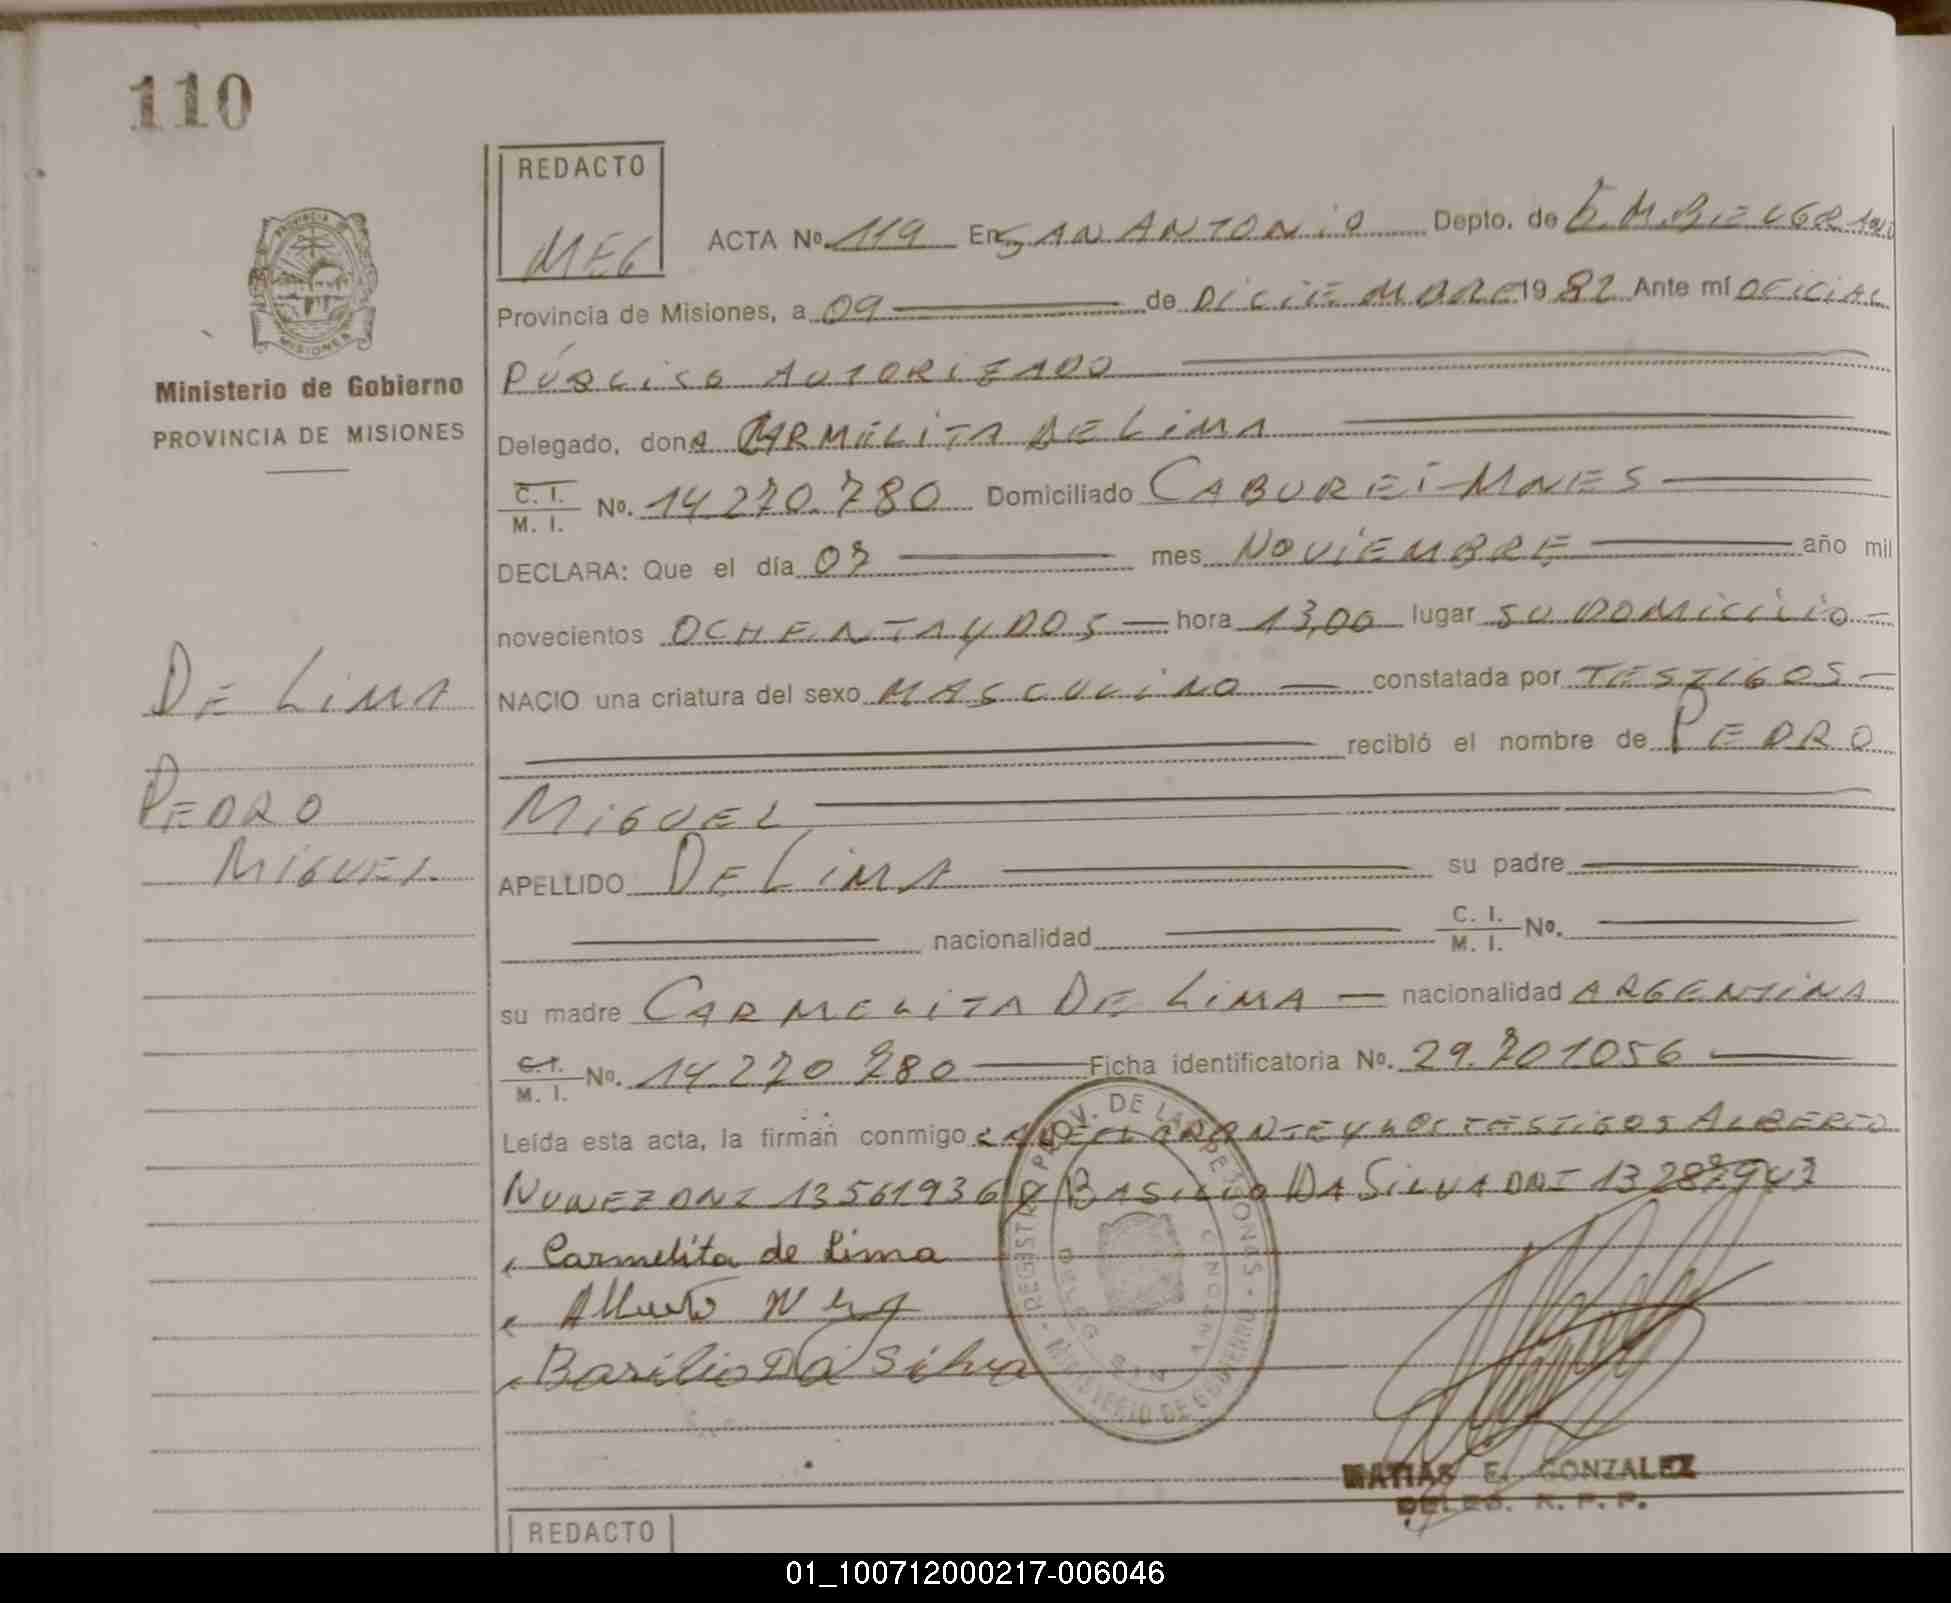 110
REDACTO
MEG
ACTA No. 119 En SAN ANTONIO Depto. de G.M.BELGRANO
Provincia de Misiones, a 09 de DICIEMBRE 1982 Ante mí OFICIAL
PÚBLICO AUTORIZADO
Delegado, donA CARMELITA DE LIMA
C. I.
M. I. No. 14.270.780 Domiciliado CABUREI-MNES
DECLARA: Que el día 07 mes NOVIEMBRE año mil
novecientos OCHENTA Y DOS hora 13,00 lugar SU DOMICILIO
NACIO una criatura del sexo MASCULINO constatada por TESTIGOS
recibió el nombre de PEDRO
MIGUEL
APELLIDO DE LIMA su padre
nacionalidad C. I.
M. I. No.
su madre CARMELITA DE LIMA nacionalidad ARGENTINA
C. I.
M. I. No. 14.270.780 Ficha identificatoria No. 29.701056
Leída esta acta, la firman conmigo LA DECLARANTE Y LOS TESTIGOS ALBERTO
NUNEZ DNI 13561936 y BASILIO DA SILVA DNI 13287943
Carmelita de Lima
Alberto
Basilio Da Silva
MATIAS E. GONZALEZ
DELEG. R. P. P.
REDACTO
PROVINCIA DE
MISIONES
Ministerio de Gobierno
PROVINCIA DE MISIONES
DE LIMA
PEDRO
MIGUEL
REGISTRO PROV. DE LAS PERSONAS
MINISTERIO DE GOBIERNO
01_100712000217-006046